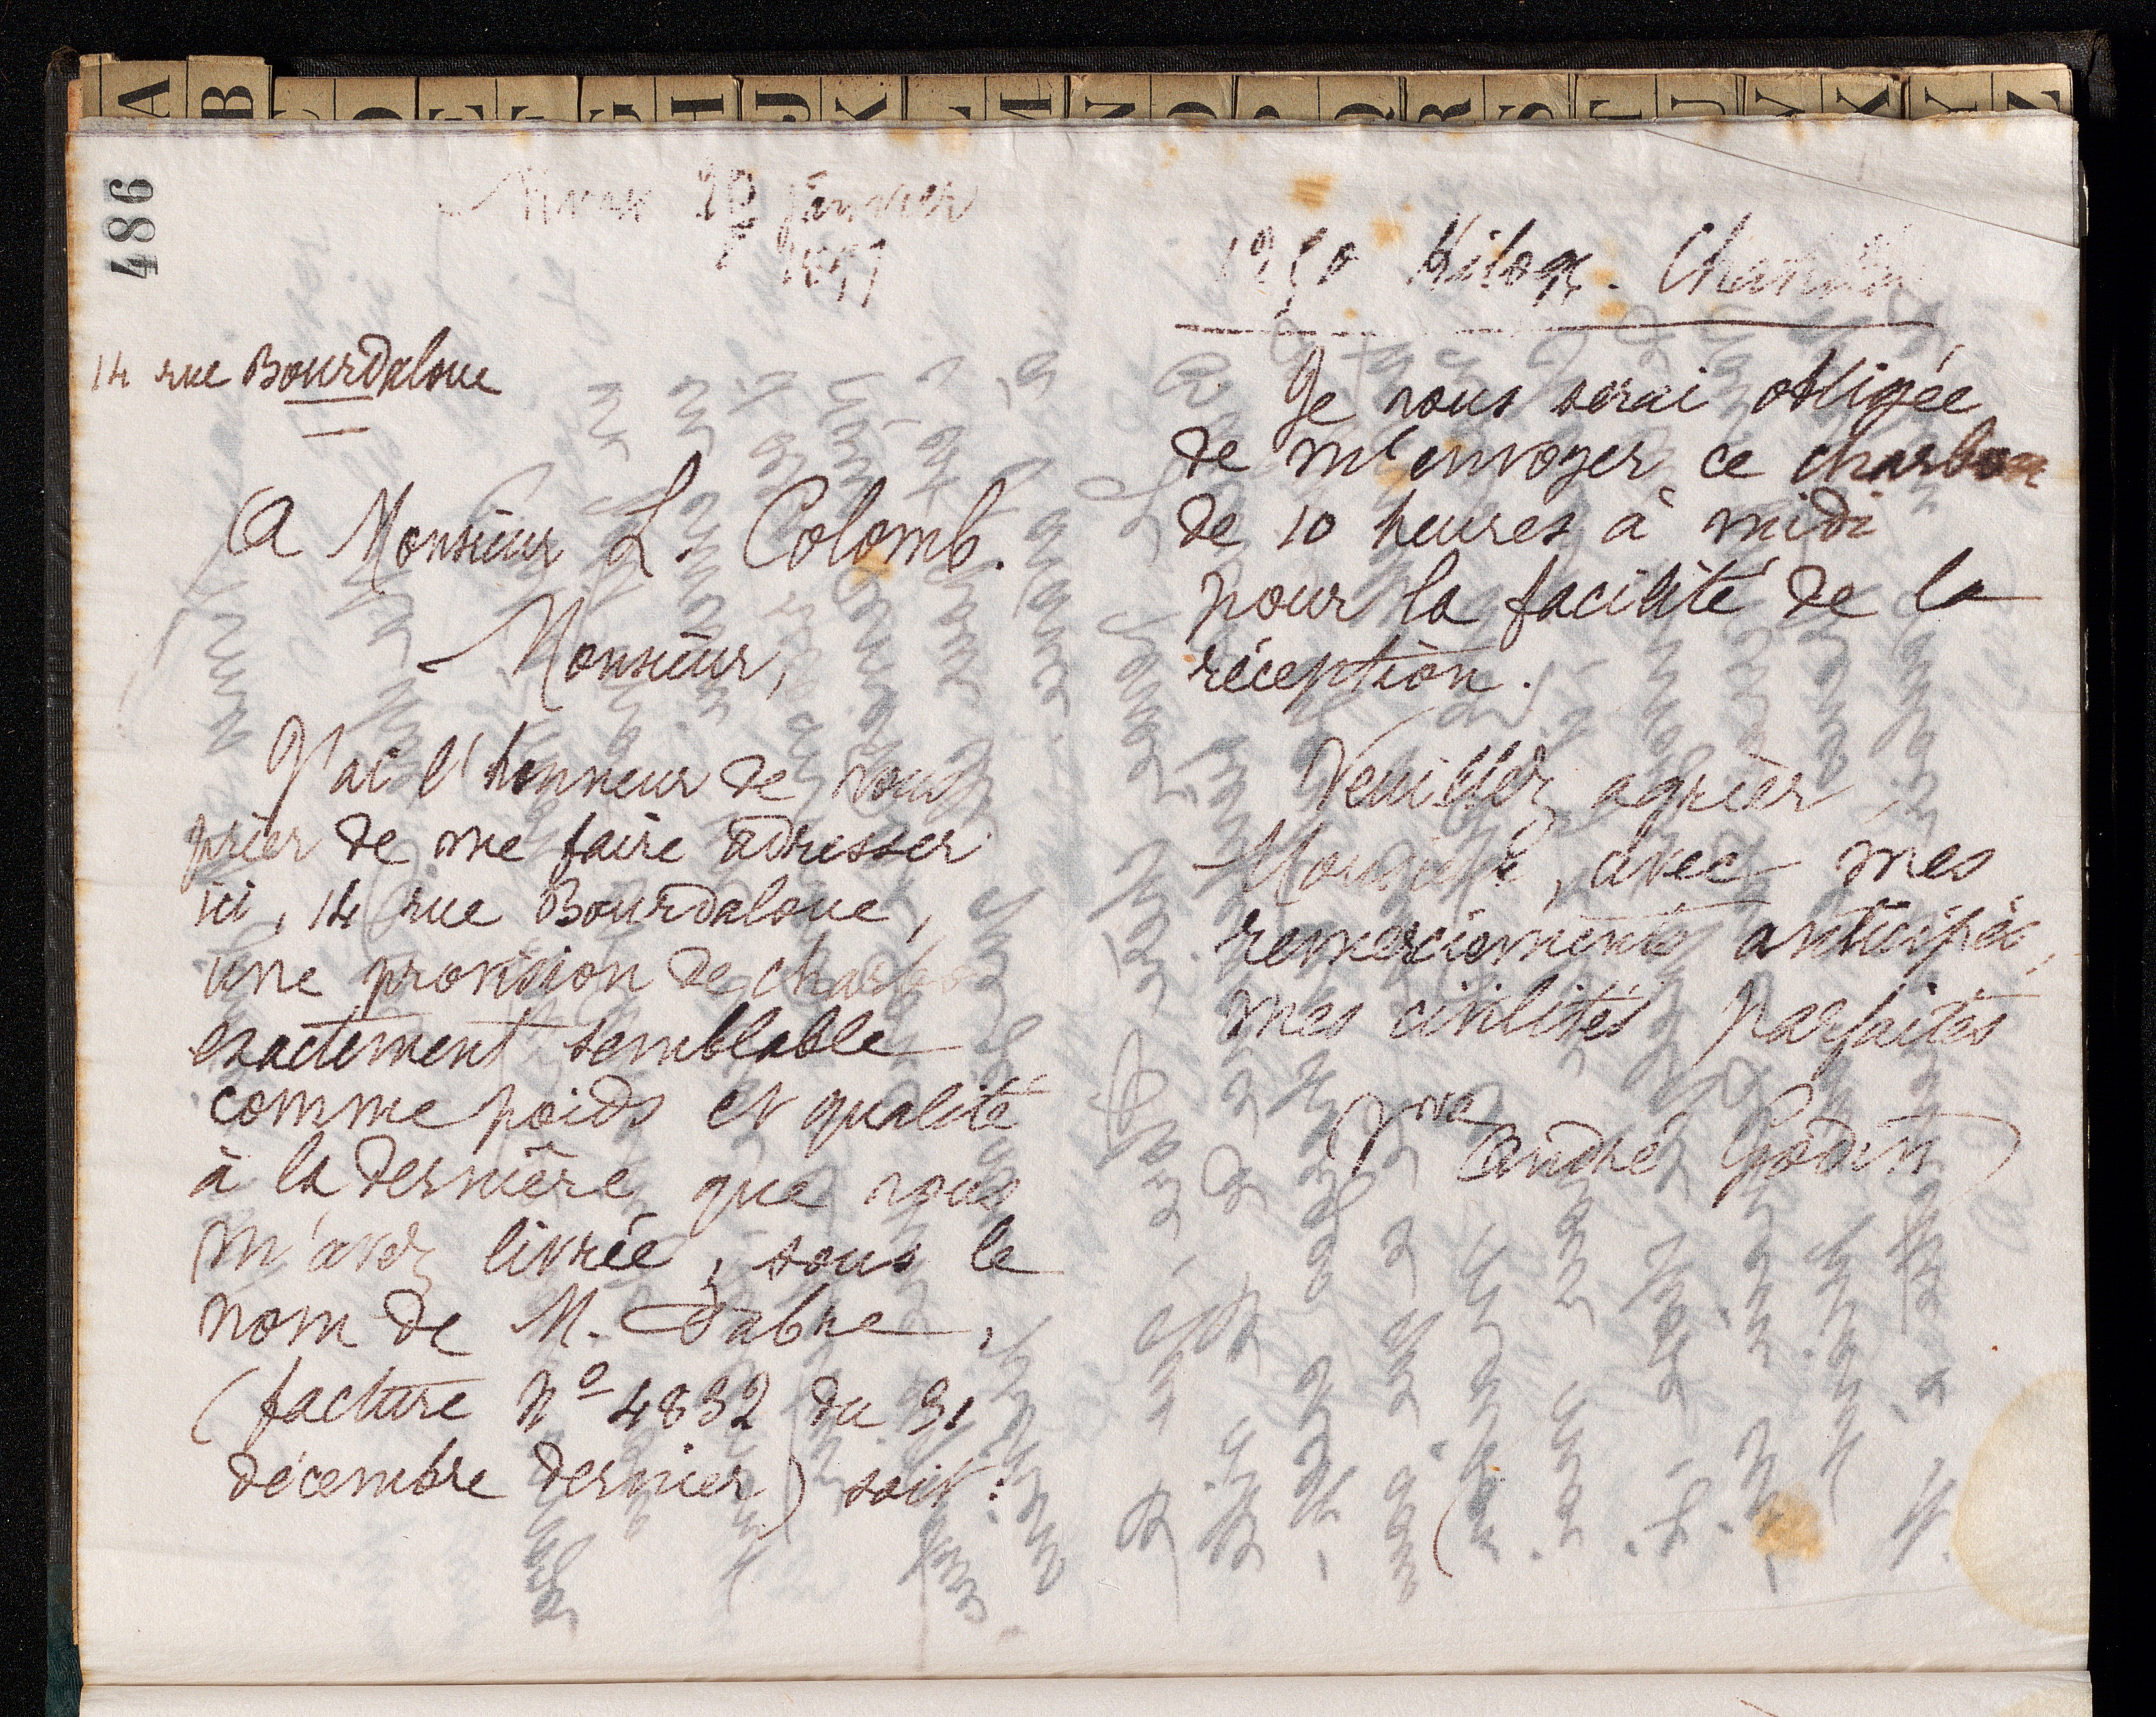 A B C D E F G H J K L M N O P Q R S T U V X Y Z
486
Nimes 20 janvier
14 rue Bourdaloue
A Monsieur L. Colomb.
Monsieur,
J'ai l'honneur de vous
prier de me faire adresser
ici, 14 rue Bourdaloue,
une provision de charbon
exactement semblable
comme poids et qualité
à la dernière que vous
m'avez livrée, sous le
nom de M. Fabre,
(facture No 4832 du 31
décembre dernier) soit:
Kilog.
Je vous serai obligée
de m'envoyer ce charbon
de 10 heures à midi
pour la facilité de la
réception.
Veuillez agréer,
Monsieur, avec mes
remerciements anticipés,
mes civilités parfaites
(Vve André Godin)